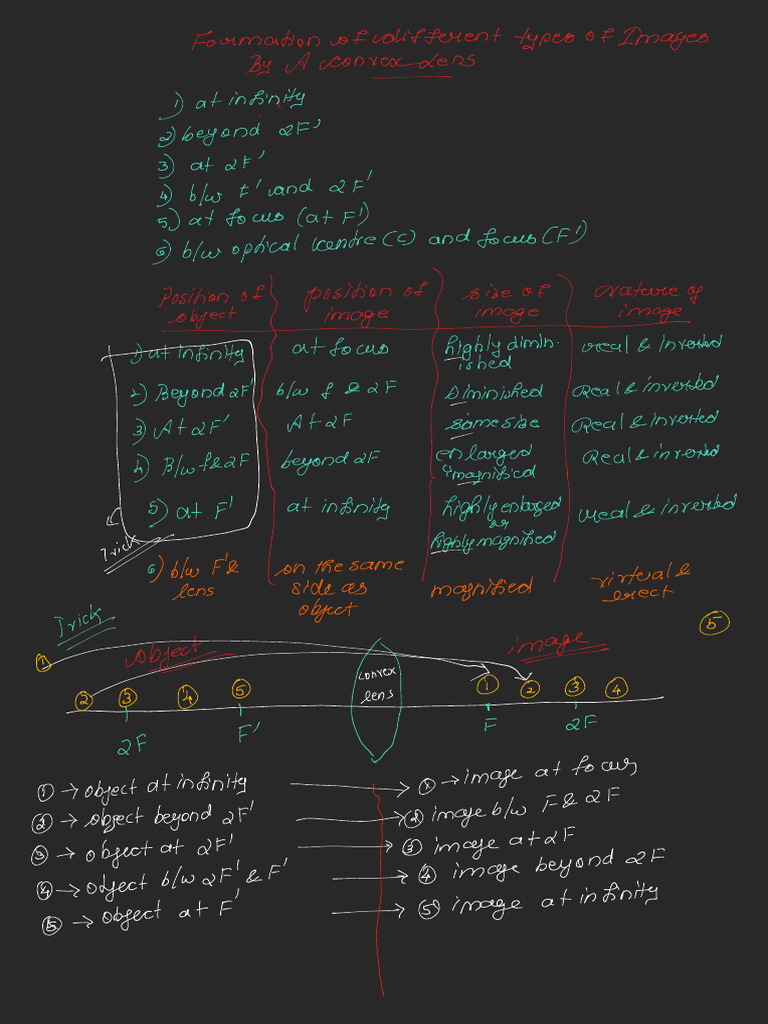 Formation of different types of Images
By A convex Lens
1) at infinity
2) beyond 2F'
3) at 2F'
4) b/w F' and 2F'
5) at focus (at F')
6) b/w optical centre (c) and focus (F')
Position of object | position of image | size of image | nature of image
1) at infinity | at focus | highly diminished | real & Inverted
2) Beyond 2F' | b/w f & 2F | Diminished | Real & inverted
3) At 2F' | At 2F | same size | Real & inverted
4) B/w f & 2F | beyond 2F | enlarged & magnified | Real & inverted
5) at F' | at infinity | highly enlarged or highly magnified | real & inverted
Trick
6) b/w F' & lens | on the same side as object | magnified | virtual & erect
Trick
5
object image
1
convex lens
2 3 4 5 1 2 3 4
2F F' F 2F
1 → object at infinity → 1 → image at focus
2 → object beyond 2F' → 2 image b/w F & 2F
3 → object at 2F' → 3 image at 2F
4 → object b/w 2F' & F' → 4 image beyond 2F
5 → object at F' → 5 image at infinity